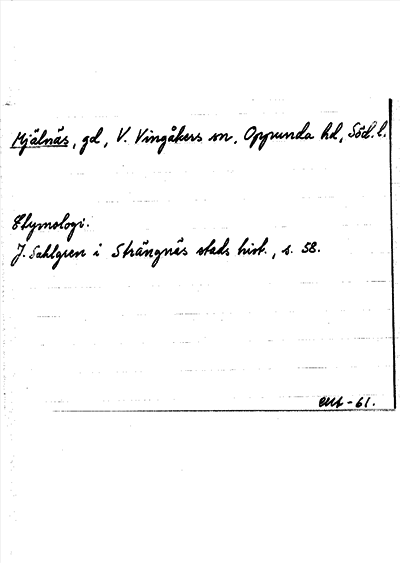 Mjälnäs, gd, V. Vingåkers sn, Oppunda hd, Söd. l.
Etymologi.
J. Sahlgren i Strängnäs stads hist., s. 58.
-61.